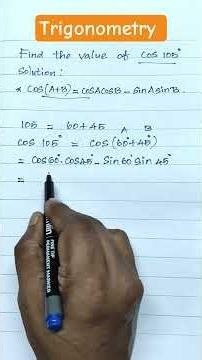 Trigonometry
Find the value of cos 105°
Solution:
* Cos(A+B) = cosA cosB - sinA sinB.
105 = 60+45 A B
Cos 105° = Cos(60°+45°)
= Cos60°. Cos45° - Sin60° Sin 45°
=